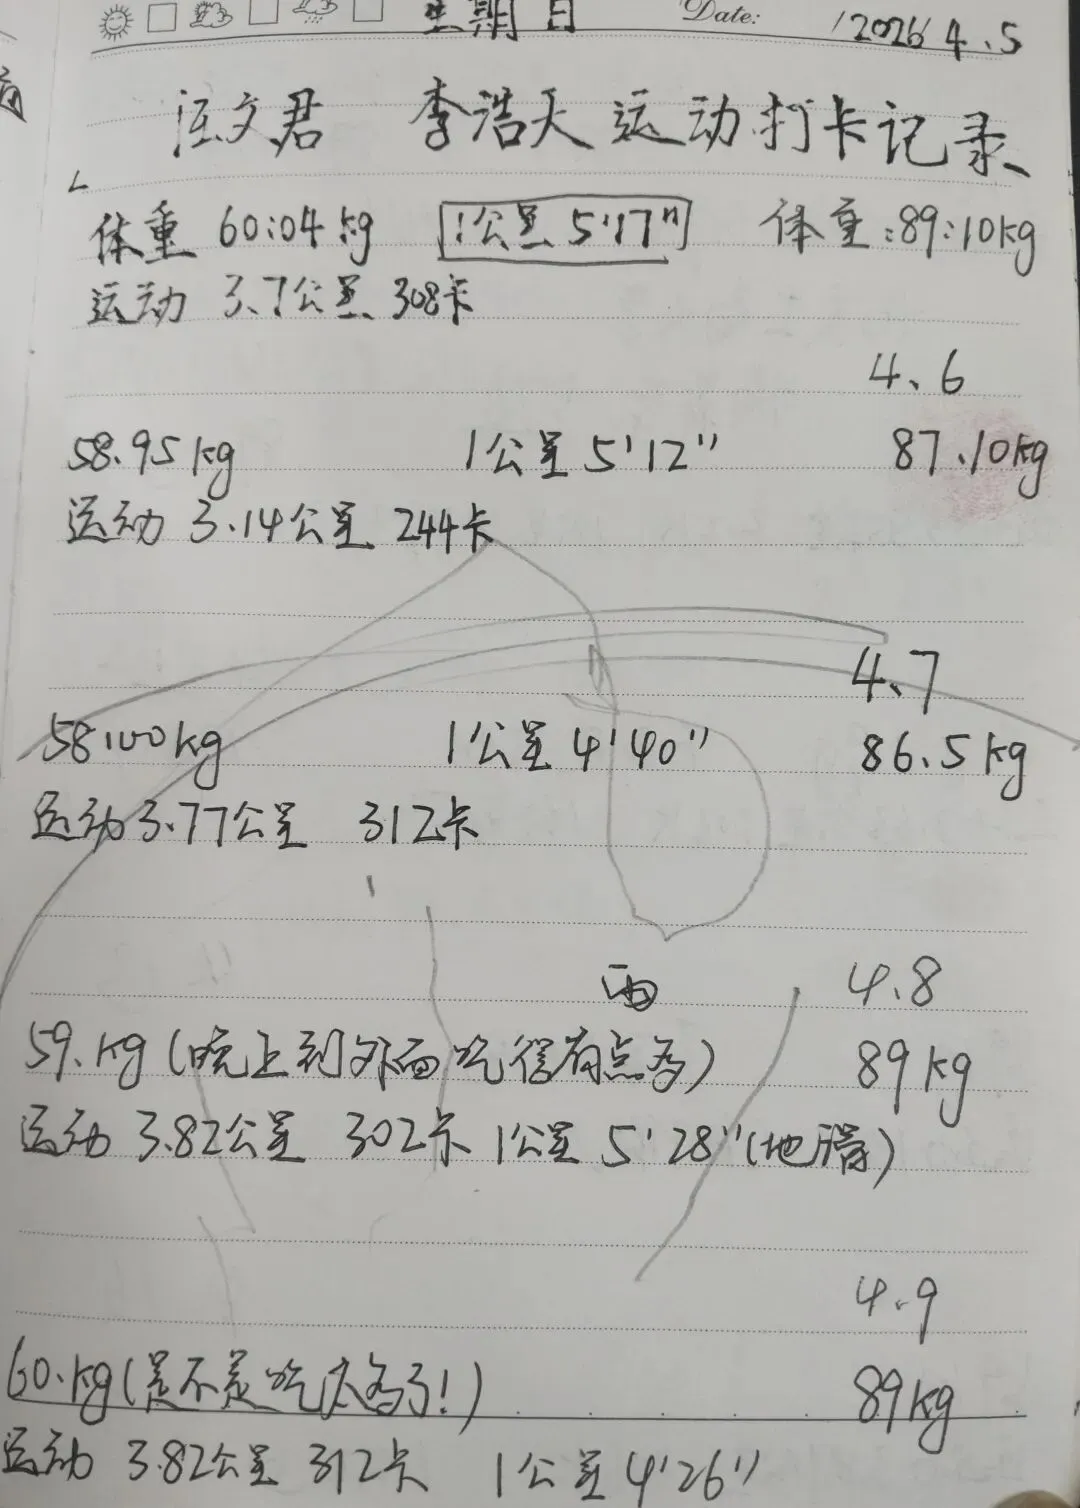 星期日 Date: 2026 4.5
汪文君 李浩天运动打卡记录
体重 60:04kg 1公里 5'17" 体重:89:10kg
运动 3.7公里 308卡
4、6
58.95kg 1公里 5'12" 87.10kg
运动 3.14公里 244卡
4、7
58:00kg 1公里 4'40" 86.5kg
运动 3.77公里 312卡
雨 4.8
59.kg(晚上到外面吃得有点多) 89kg
运动 3.82公里 302卡 1公里 5'28"(地滑)
4.9
60.kg(是不是吃太多了!) 89kg
运动 3.82公里 312卡 1公里 4'26"